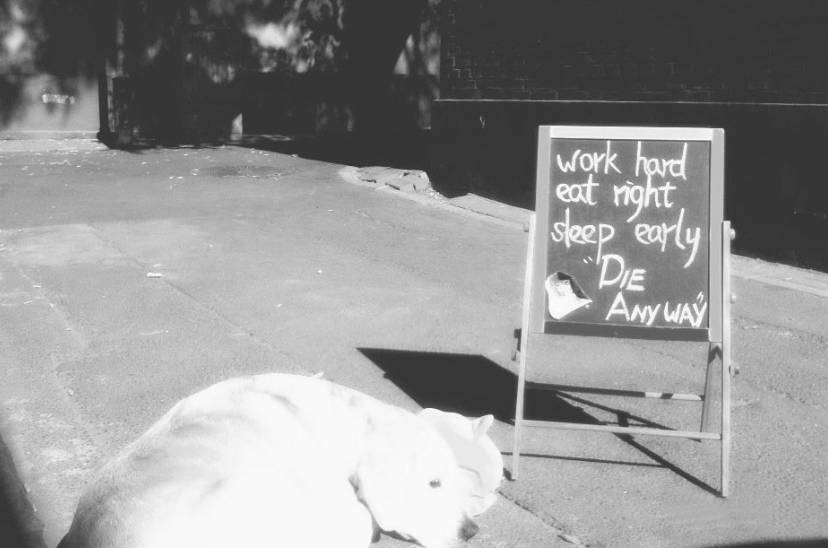 work hard
eat right
sleep early
"DIE
ANYWAY"